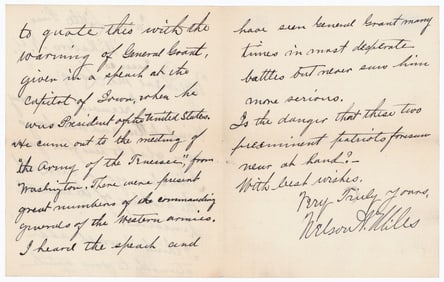 to quote this with the
warning of General Grant,
given in a speach at the
Capitol of Iowa, when he
was President of the United States.
He came out to the meeting of
"the Army of the Tenessee", from
Washington. There were present
great numbers of the commanding
generals of the Western armies.
I heard the speach and
have seen General Grant many
times in most desperate
battles but never saw him
more serious.
Is the danger that these two
preeminent patriots foresaw
near at hand?—
With best wishes.
Very Truly Yours,
Nelson A. Miles